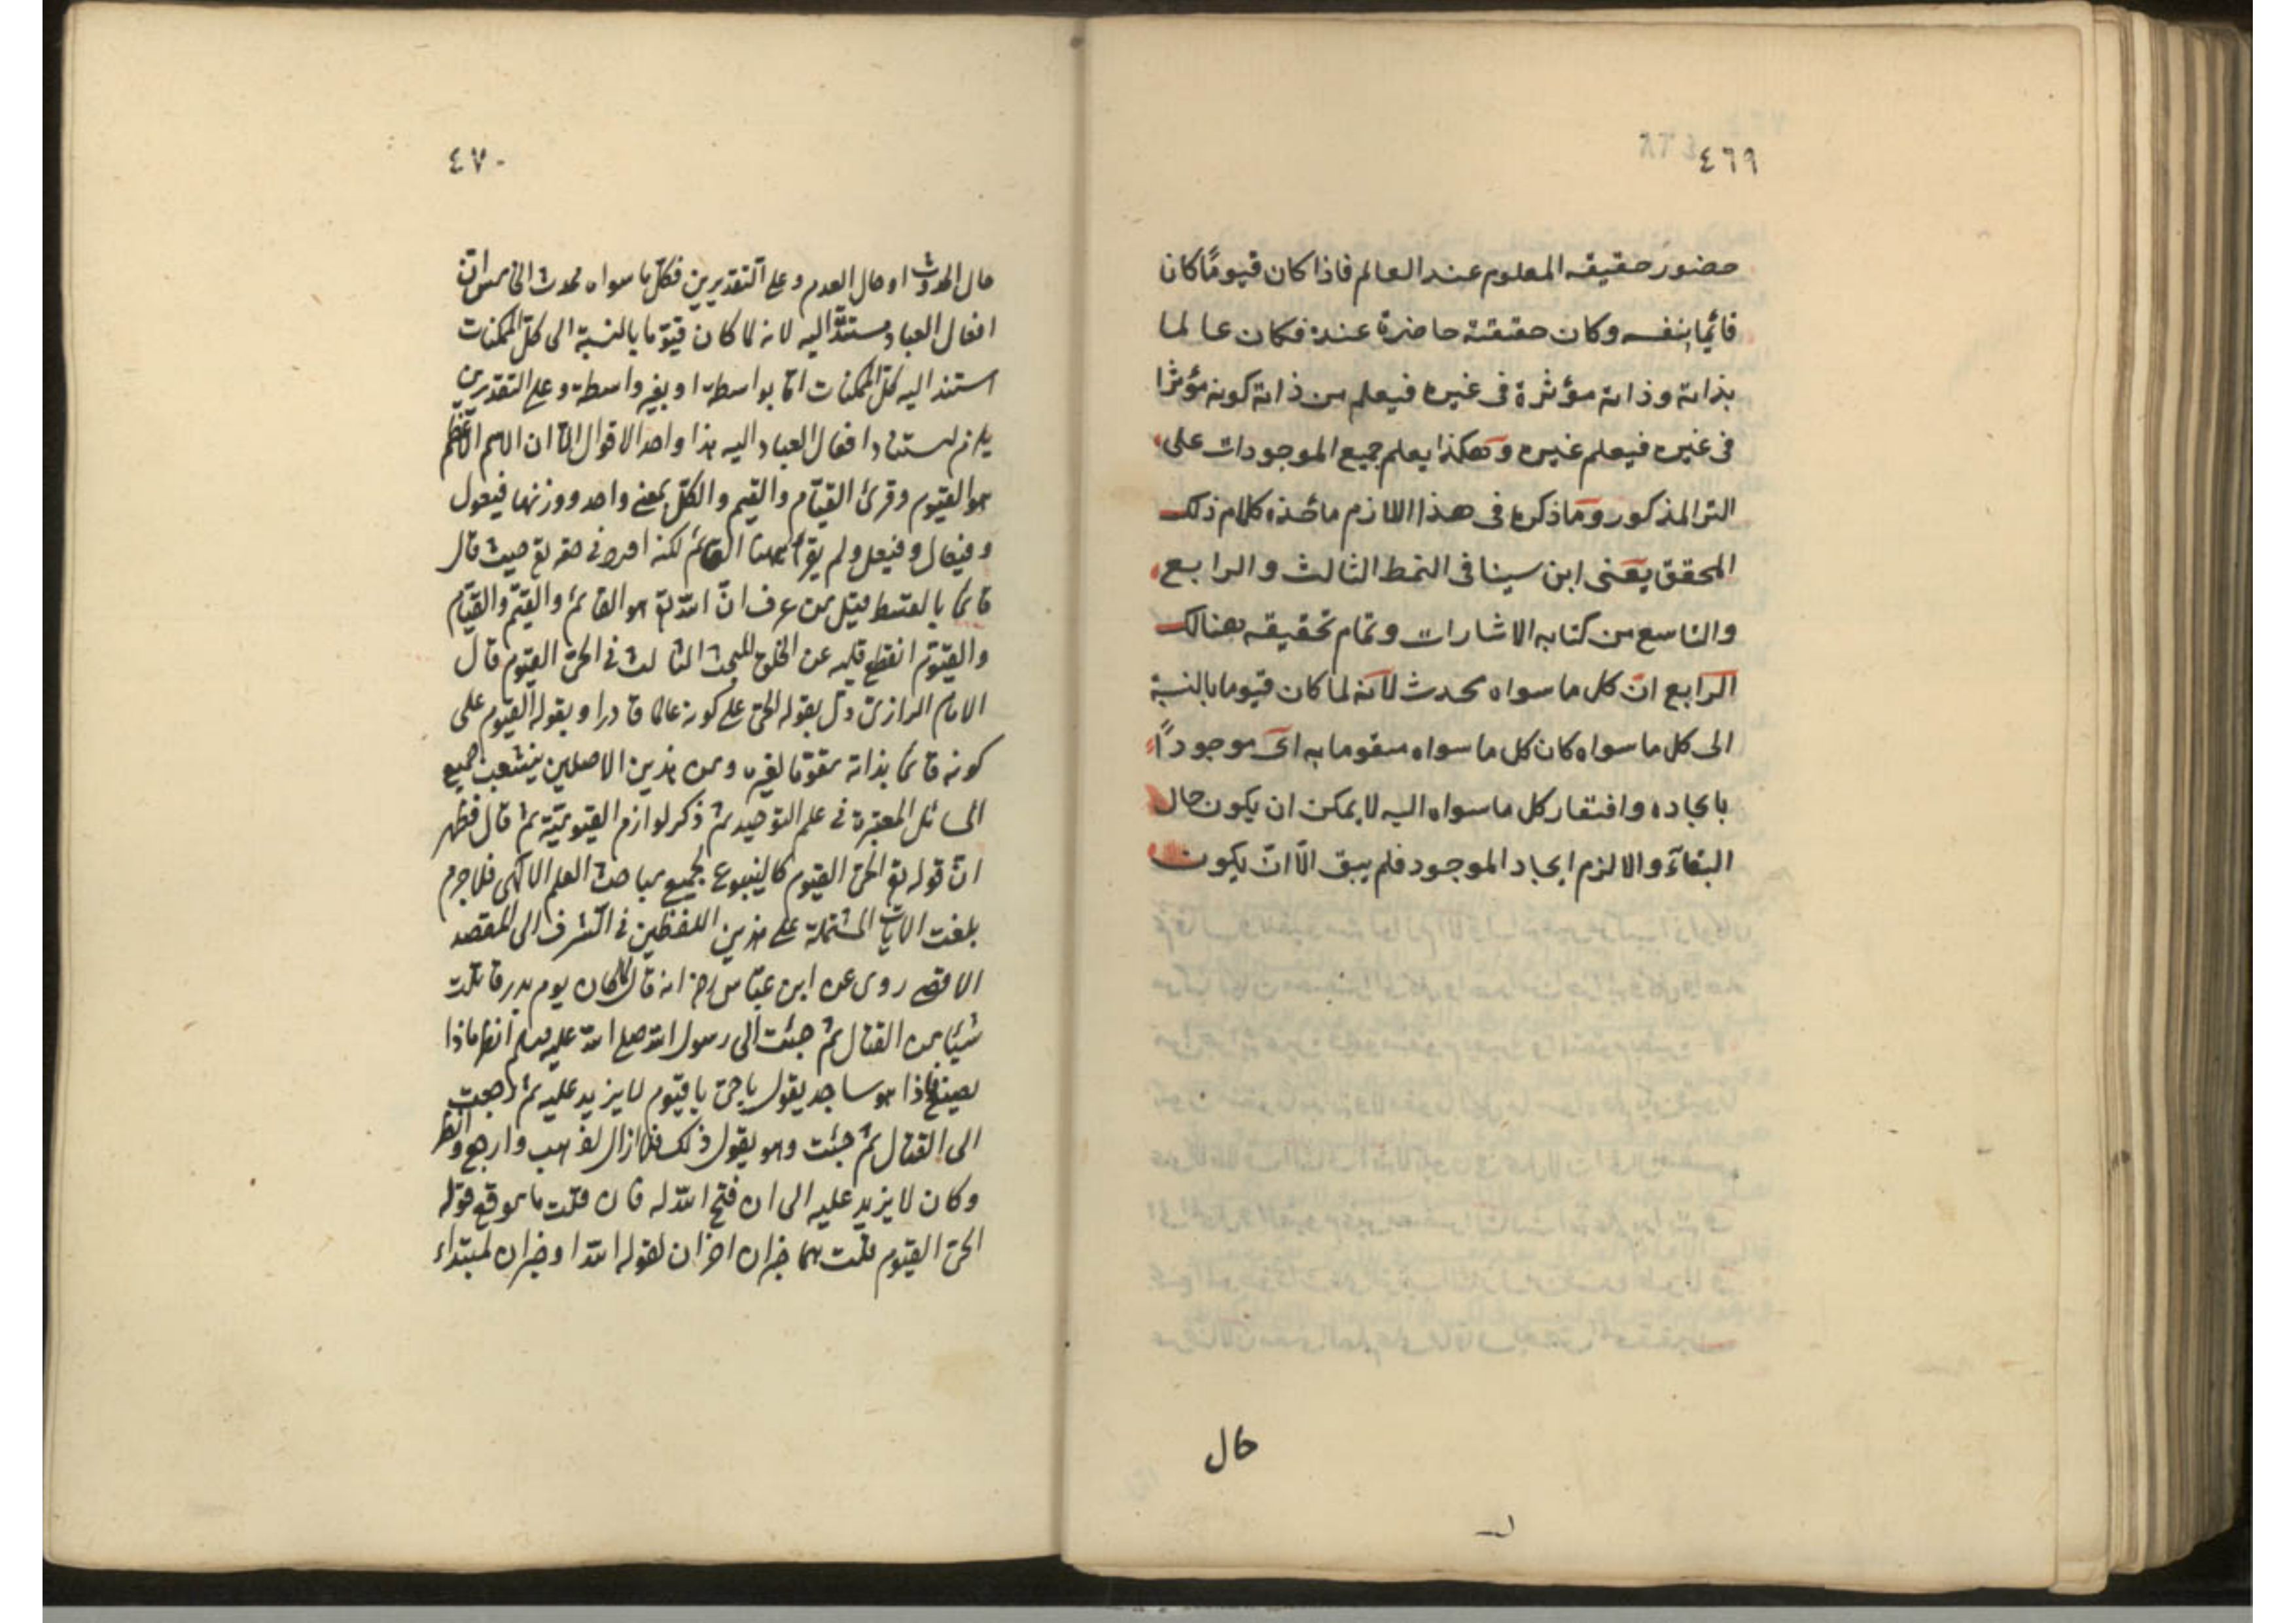 ٤٦٩
حضور حقيقه المعلوم عند العالم فاذا كان قيومًا كان
قائما بنفسه وكان حقيقته حاضرة عنده فكان عالما
بذاته وذاته مؤثرة فى غيره فيعلم من ذاته كونه مؤثرا
فى غيره فيعلم غيره وهكذا يعلم جميع الموجودات على
التر المذكور وما ذكره فى هذا اللازم مأخذه كلام ذلك
المحقق يعنى ابن سينا فى النمط الثالث والرابع
والتاسع من كتابه الاشارات وتمام تحقيقه هنالك
الرابع ان كل ما سواه محدث لانه لما كان قيوما بالنسبة
الى كل ما سواه كان كل ما سواه متقوما به اى موجودًا
بايجاده وافتقار كل ما سواه اليه لا يمكن ان يكون حال
البقآء والا لزم ايجاد الموجود فلم يبق الّا انّ يكون
حال
٤٧٠
حال الحدوث او حال العدم وعلى التقديرين فكلّ ما سواه محدث الخامس ان
افعال العباد مستندة اليه لانه لما كان قيّوما بالنسبة الى كلّ الممكنات
استند اليه كلّ الممكنات امّا بواسطة او بغير واسطة وعلى التقديرين
يلزم استناد افعال العباد اليه هذا واحد الاقوال ان الاسم الاعظم
هو القيوم وقرئ القيّام والقيم والكلّ بمعنى واحد ووزنها فيعول
وفيعال وفيعل ولم يقرأ ههنا القائم لكنه اورد فى حقه تع حيث قال
قائما بالقسط قيل من عرف انّ الله تع هو القائم والقيّم والقيّام
والقيّوم انقطع قلبه عن الخلق المبحث الثالث فى الحىّ القيوم قال
الامام الرازىّ دلّ بقوله الحىّ على كونه عالما قادرا وبقوله القيّوم على
كونه قائما بذاته مقوّما لغيره ومن هذين الاصلين ينشعب جميع
المسائل المعتبرة فى علم التوحيد ثم ذكر لوازم القيوميّة ثم قال فظهر
انّ قوله تع الحىّ القيوم كالينبوع لجميع مباحث العلم الالهى فلا جرم
بلغت الايات المشتملة على هذين اللفظين فى الشرف الى المقصد
الاقصى روى عن ابن عبّاس رض انه قال لما كان يوم بدر قاتلت
شيئا من القتال ثم جئت الى رسول الله صلى الله عليه وسلم انظر ماذا
يصنع فاذا هو ساجد يقول يا حىّ يا قيّوم لا يزيد عليه ثم رجعت
الى القتال ثم جئت وهو يقول ذلك فلا ازال اذهب وارجع وانظر
وكان لا يزيد عليه الى ان فتح الله له فان قلت ما موقع قوله
الحىّ القيوم قلت هما خبران اخران لقوله الله او خبران لمبتداء